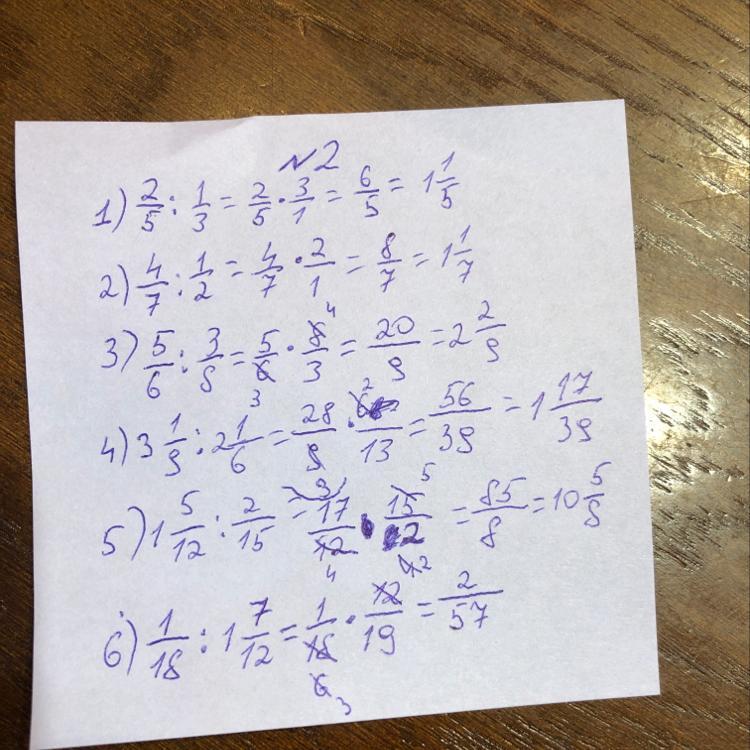 №2
1) 2/5 : 1/3 = 2/5 · 3/1 = 6/5 = 1 1/5
2) 4/7 : 1/2 = 4/7 · 2/1 = 8/7 = 1 1/7
3) 5/6 : 3/8 = 5/6 · 8/3 = 20/9 = 2 2/9
4) 3 1/9 : 2 1/6 = 28/9 · 6/13 = 56/39 = 1 17/39
5) 1 5/12 : 2/15 = 17/12 · 15/2 = 85/8 = 10 5/8
6) 1/18 : 1 7/12 = 1/18 · 12/19 = 2/57